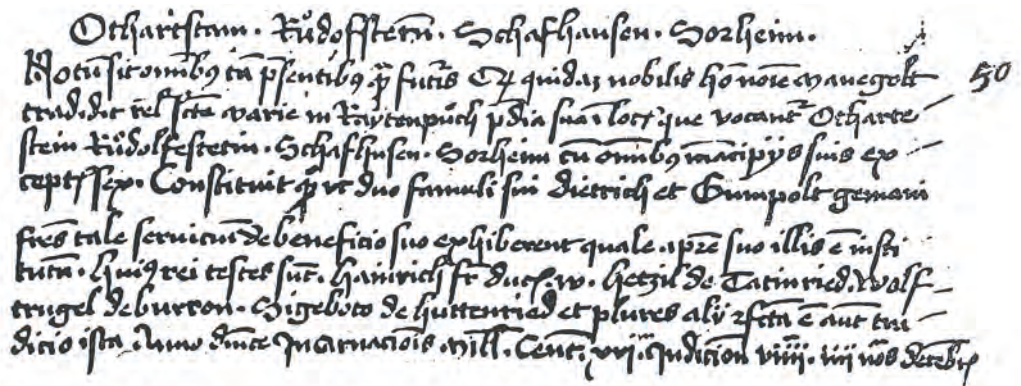 Othartstain · Růdofstein̄ · Schafhausen · Sorheim ·
Notū sit omnibꝫ tā p̄sentibꝫ q̄ȝ futuris Qꝫ quidaȝ nobilis hō noīe manegolt 50
tradidit rel' scē marie in Raytenpůch p̄dia sua ī locꝭ que vocant᷑ Otharte
stein Růdolfestetin · Schafhusen · Sorheim cū om̄ibꝫ mācipijs suis ex
ceptꝭ sex · Constituit q̄ȝ vt duo famuli sui Dietrich et Gumpolt germani
fr̄es tale seruiciū de beneficio suo exhiberent quale a pr̄e suo illis ē insti
tutū · huiꝰ rei testes sūt · hainrich fr̄ ducꝭ · w · hetzil de Tatinried · Wolf
trigel de burron · Sigeboto de huttenried et plures alij ꝛ fc̄ta ē aut̄ tra
dicio ista Anno dn̄ice Incarnacioīs Mill' · Cent · xvij · Indicion viiij · iiij nōs decēbrꝭ